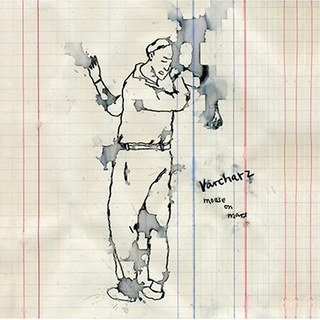 Varcharz
mouse
on
mars